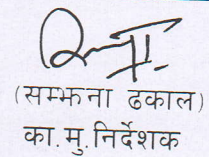 (सम्झना ढकाल)
का.मु.निर्देशक